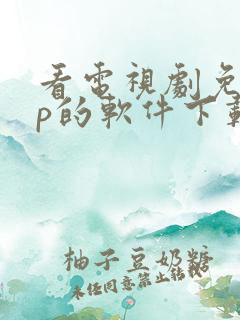 看電視劇免
p的軟件下載
柚子豆奶糖
未任同意禁止鈷載